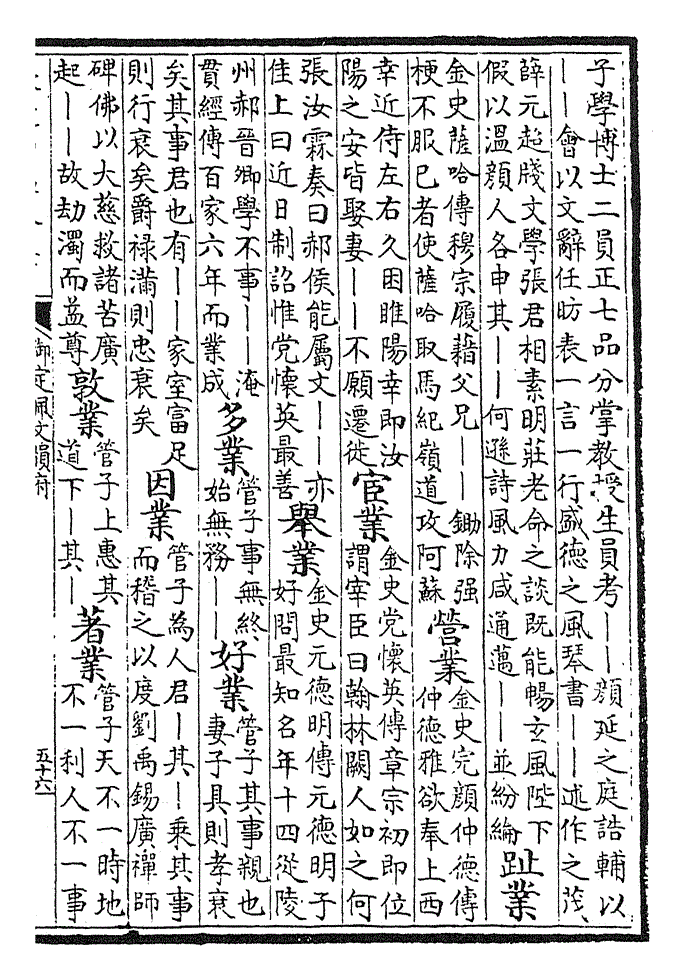 子學博士二員正七品分掌教授生員考——顔延之庭誥輔以
——會以文辭任昉表一言一行盛德之風琴書——述作之茂
薛元超牋文學張君相素明莊老命之談既能暢玄風陛下
假以溫顔人各申其——何遜詩風力咸通邁——並紛綸
趾業
金史薩哈傳穆宗履藉父兄——鋤除强
梗不服己者使薩哈取馬紀嶺道攻阿蘇
營業
金史完顔仲德傳
仲德雅欲奉上西
幸近侍左右久困睢陽幸即汝
陽之安皆娶妻——不願遷徙
官業
金史党懷英傳章宗初即位
謂宰臣曰翰林闕人如之何
張汝霖奏曰郝侯能屬文——亦
佳上曰近日制詔惟党懷英最善
舉業
金史元德明傳元德明子
好問最知名年十四從陵
州郝晉卿學不事——淹
貫經傳百家六年而業成
多業
管子事無終
始無務——
好業
管子其事親也
妻子具則孝衰
矣其事君也有——家室富足
則行衰矣爵祿滿則忠衰矣
因業
管子為人君—其—乘其事
而稽之以度劉禹錫廣禪師
碑佛以大慈救諸苦廣
起——故劫濁而益尊
敦業
管子上惠其
道下—其—
著業
管子天不一時地
不一利人不一事
御定佩文韻府
五十六